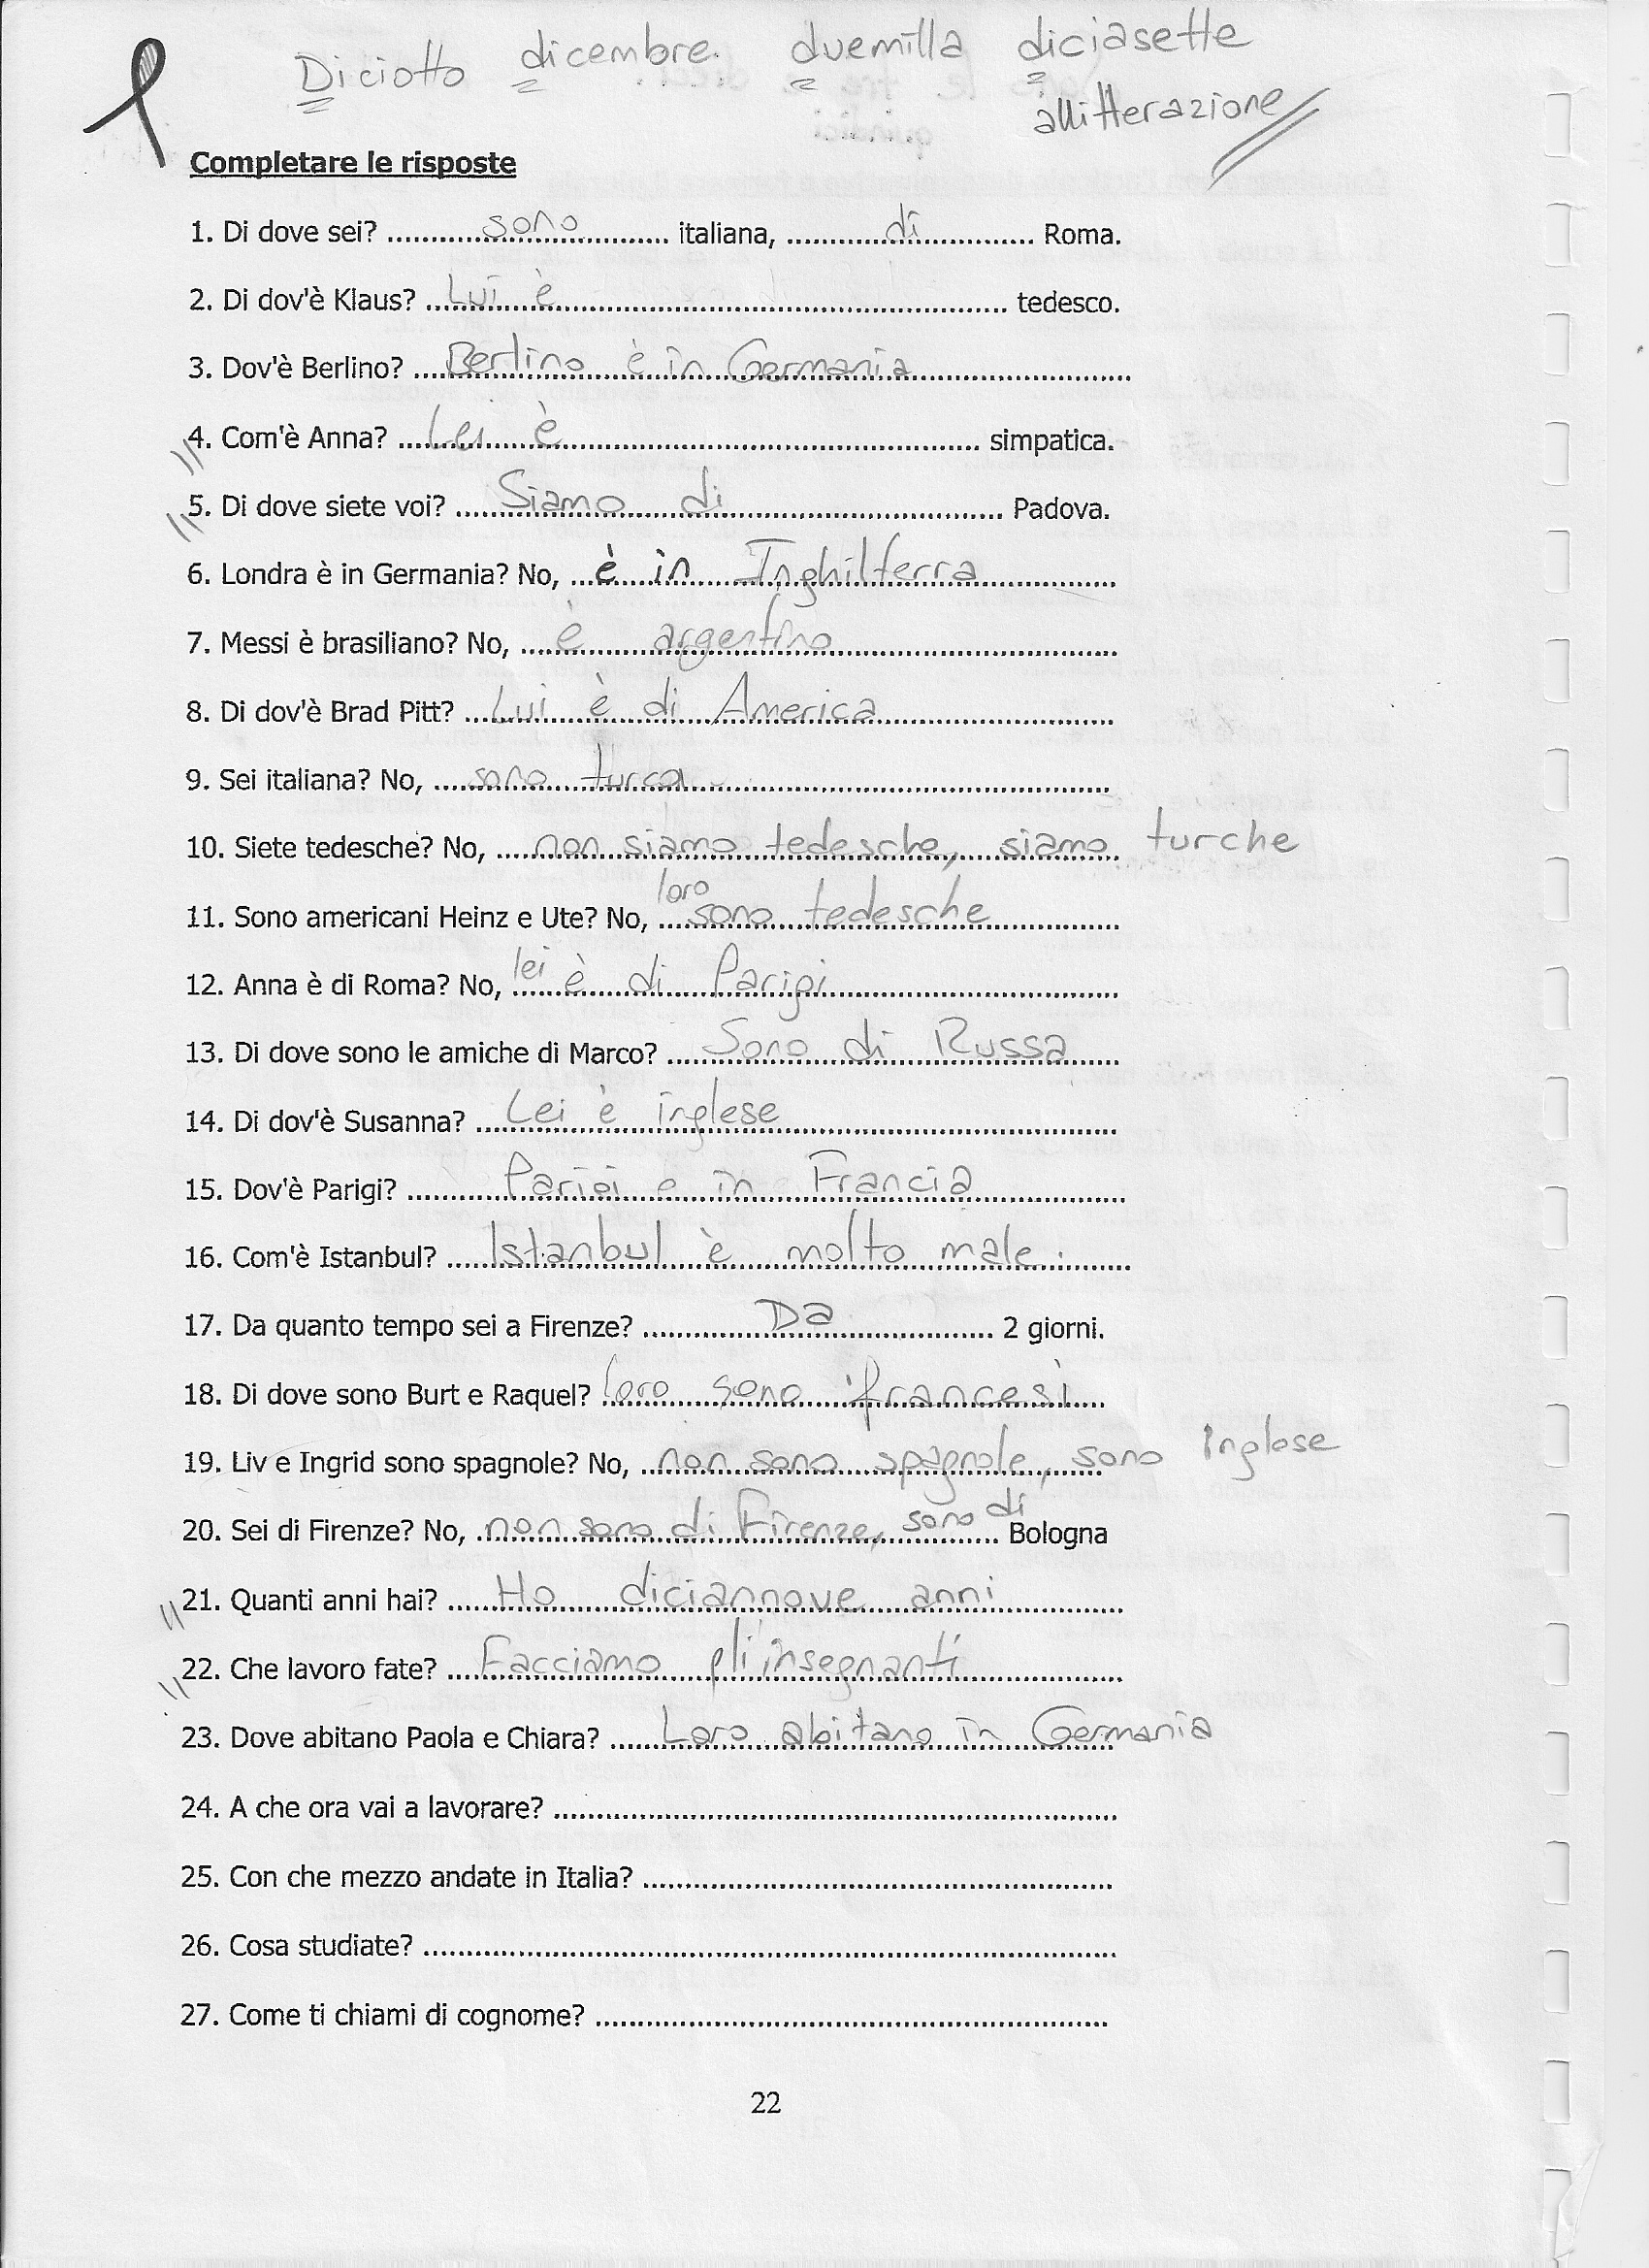 Diciotto dicembre. duemilla diciasette
allitterazione
Completare le risposte
1. Di dove sei? ..........sono.......... italiana, ..........di.......... Roma.
2. Di dov'è Klaus? ...Lui è.......... tedesco.
3. Dov'è Berlino? ...Berlino è in Germania..........
4. Com'è Anna? ...Lei è.......... simpatica.
5. Di dove siete voi? ...Siamo di.......... Padova.
6. Londra è in Germania? No, ...è in Inghilterra..........
7. Messi è brasiliano? No, ...è argentino..........
8. Di dov'è Brad Pitt? ...Lui è di America..........
9. Sei italiana? No, ...sono turca..........
10. Siete tedesche? No, ...non siamo tedesche, siamo turche
11. Sono americani Heinz e Ute? No, ...loro sono tedesche..........
12. Anna è di Roma? No, lei è di Parigi..........
13. Di dove sono le amiche di Marco? ...Sono di Russa...
14. Di dov'è Susanna? ...Lei è inglese..........
15. Dov'è Parigi? ..........Parigi e in Francia..........
16. Com'è Istanbul? ...Istanbul è molto male...
17. Da quanto tempo sei a Firenze? ..........Da.......... 2 giorni.
18. Di dove sono Burt e Raquel? loro sono francesi...
19. Liv e Ingrid sono spagnole? No, ...non sono spagnole, sono Inglese
20. Sei di Firenze? No, ...non sono di Firenze, sono di... Bologna
21. Quanti anni hai? ...Ho diciannove anni..........
22. Che lavoro fate? ...Facciamo gli insegnanti..........
23. Dove abitano Paola e Chiara? ...Loro abitano in Germania
24. A che ora vai a lavorare? ..........
25. Con che mezzo andate in Italia? ..........
26. Cosa studiate? ..........
27. Come ti chiami di cognome? ..........
22